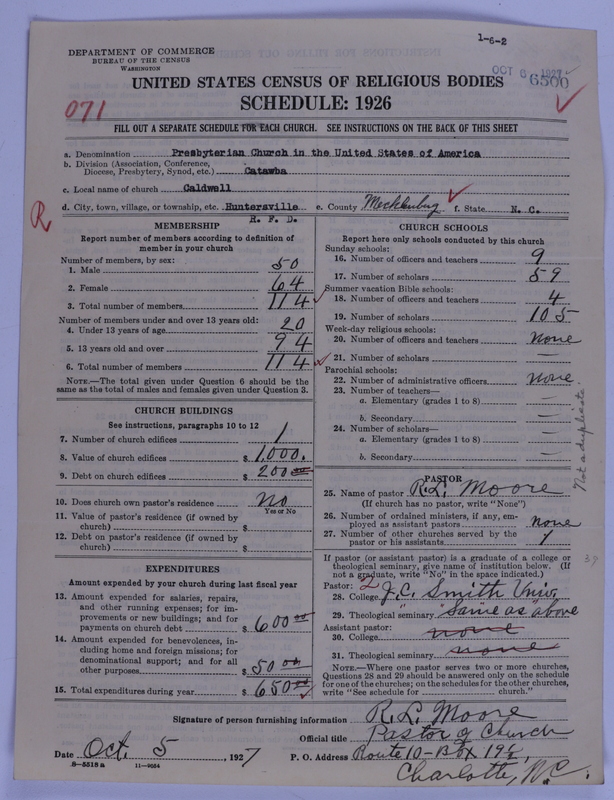 1-6-2
DEPARTMENT OF COMMERCE
BUREAU OF THE CENSUS
WASHINGTON
OCT 6 1927
6500
UNITED STATES CENSUS OF RELIGIOUS BODIES
SCHEDULE: 1926
071
FILL OUT A SEPARATE SCHEDULE FOR EACH CHURCH. SEE INSTRUCTIONS ON THE BACK OF THIS SHEET
a. Denomination Presbyterian Church in the United States of America
b. Division (Association, Conference, Diocese, Presbytery, Synod, etc.) Catawba
c. Local name of church Caldwell
d. City, town, village, or township, etc. Huntersville e. County Mecklenburg f. State N. C.
R. F. D.
R
MEMBERSHIP
Report number of members according to definition of
member in your church
Number of members, by sex:
1. Male 50
2. Female 64
3. Total number of members 114
Number of members under and over 13 years old:
4. Under 13 years of age 20
5. 13 years old and over 94
6. Total number of members 114
NOTE.—The total given under Question 6 should be the
same as the total of males and females given under Question 3.
CHURCH BUILDINGS
See instructions, paragraphs 10 to 12
7. Number of church edifices 1
8. Value of church edifices $ 1,000.
9. Debt on church edifices $ 200 00
10. Does church own pastor's residence No
Yes or No
11. Value of pastor's residence (if owned by
church) $
12. Debt on pastor's residence (if owned by
church) $
EXPENDITURES
Amount expended by your church during last fiscal year
13. Amount expended for salaries, repairs,
and other running expenses; for im-
provements or new buildings; and for
payments on church debt $ 600 00
14. Amount expended for benevolences, in-
cluding home and foreign missions; for
denominational support; and for all
other purposes $ 50 00
15. Total expenditures during year $ 650 00
CHURCH SCHOOLS
Report here only schools conducted by this church
Sunday schools:
16. Number of officers and teachers 9
17. Number of scholars 59
Summer vacation Bible schools:
18. Number of officers and teachers 4
19. Number of scholars 105
Week-day religious schools:
20. Number of officers and teachers none
21. Number of scholars —
Parochial schools:
22. Number of administrative officers none
23. Number of teachers—
a. Elementary (grades 1 to 8) —
b. Secondary —
24. Number of scholars—
a. Elementary (grades 1 to 8) —
b. Secondary —
Not a duplicate.
PASTOR
25. Name of pastor R.L. Moore
(If church has no pastor, write "None")
26. Number of ordained ministers, if any, em-
ployed as assistant pastors none
27. Number of other churches served by the
pastor or his assistants 1
If pastor (or assistant pastor) is a graduate of a college or
theological seminary, give name of institution below. (If
not a graduate, write "No" in the space indicated.)
Pastor:
28. College J.C. Smith Univ.
29. Theological seminary " "Same as" above
Assistant pastor:
30. College none
31. Theological seminary none
NOTE.—Where one pastor serves two or more churches,
Questions 28 and 29 should be answered only on the schedule
for one of the churches; on the schedules for the other churches,
write "See schedule for ______ church."
Signature of person furnishing information R.L. Moore
Official title Pastor of Church
Date Oct. 5, 1927 P. O. Address Route 10-Box 19½,
8-5518 a 11-9034
Charlotte, N.C.